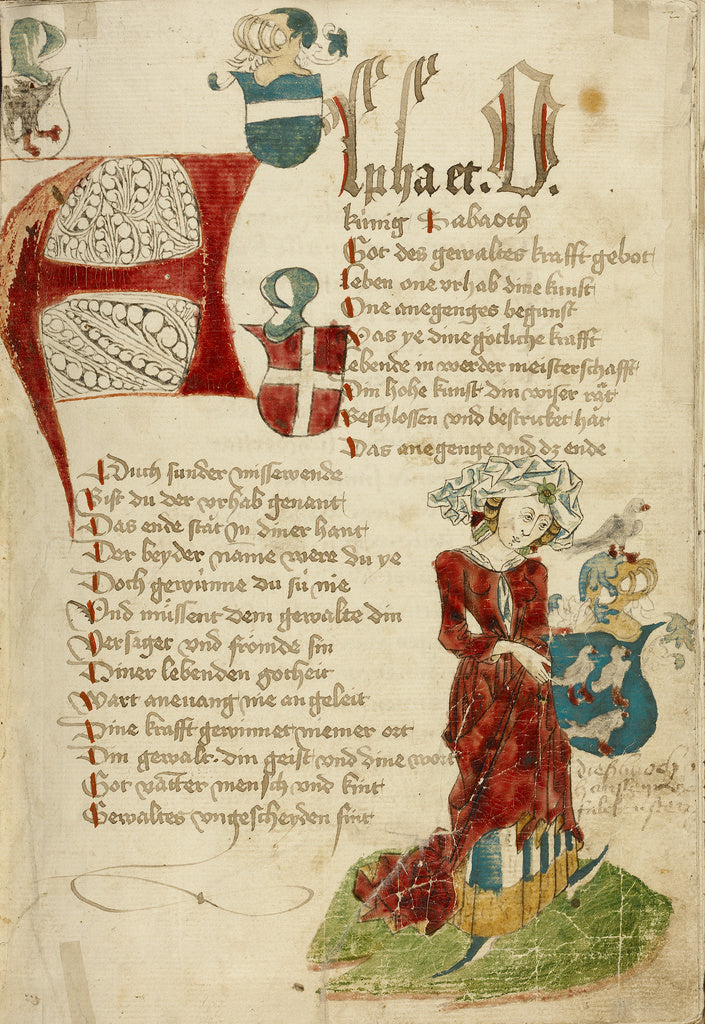 Alpha et. O.
künig Sabaoth
Got des gewaltes krafft gebot
Leben one vrhab dine kunst
One anegenges begunst
Was ye dine götliche krafft
Lebende in werder meisterschafft
Din hohe kunst din wiser rät
Beschlossen vnd bestricket hät
Das anegenge vnd dz ende
Duch sunder missewende
Bist du der vrhab genant
Das ende stät in diner hant
Der beyder name were du ye
Doch gewünne du sü nie
Vnd müssent dem gewalte din
Versager vnd frömde sin
Diner lebenden gotheit
Wart anevang nie an geleit
Dine krafft gewinnet niemer ort
Din gewalt. din geist vnd dine wort
Got vätter mensch vnd kint
Gewaltes vngescheyden sint